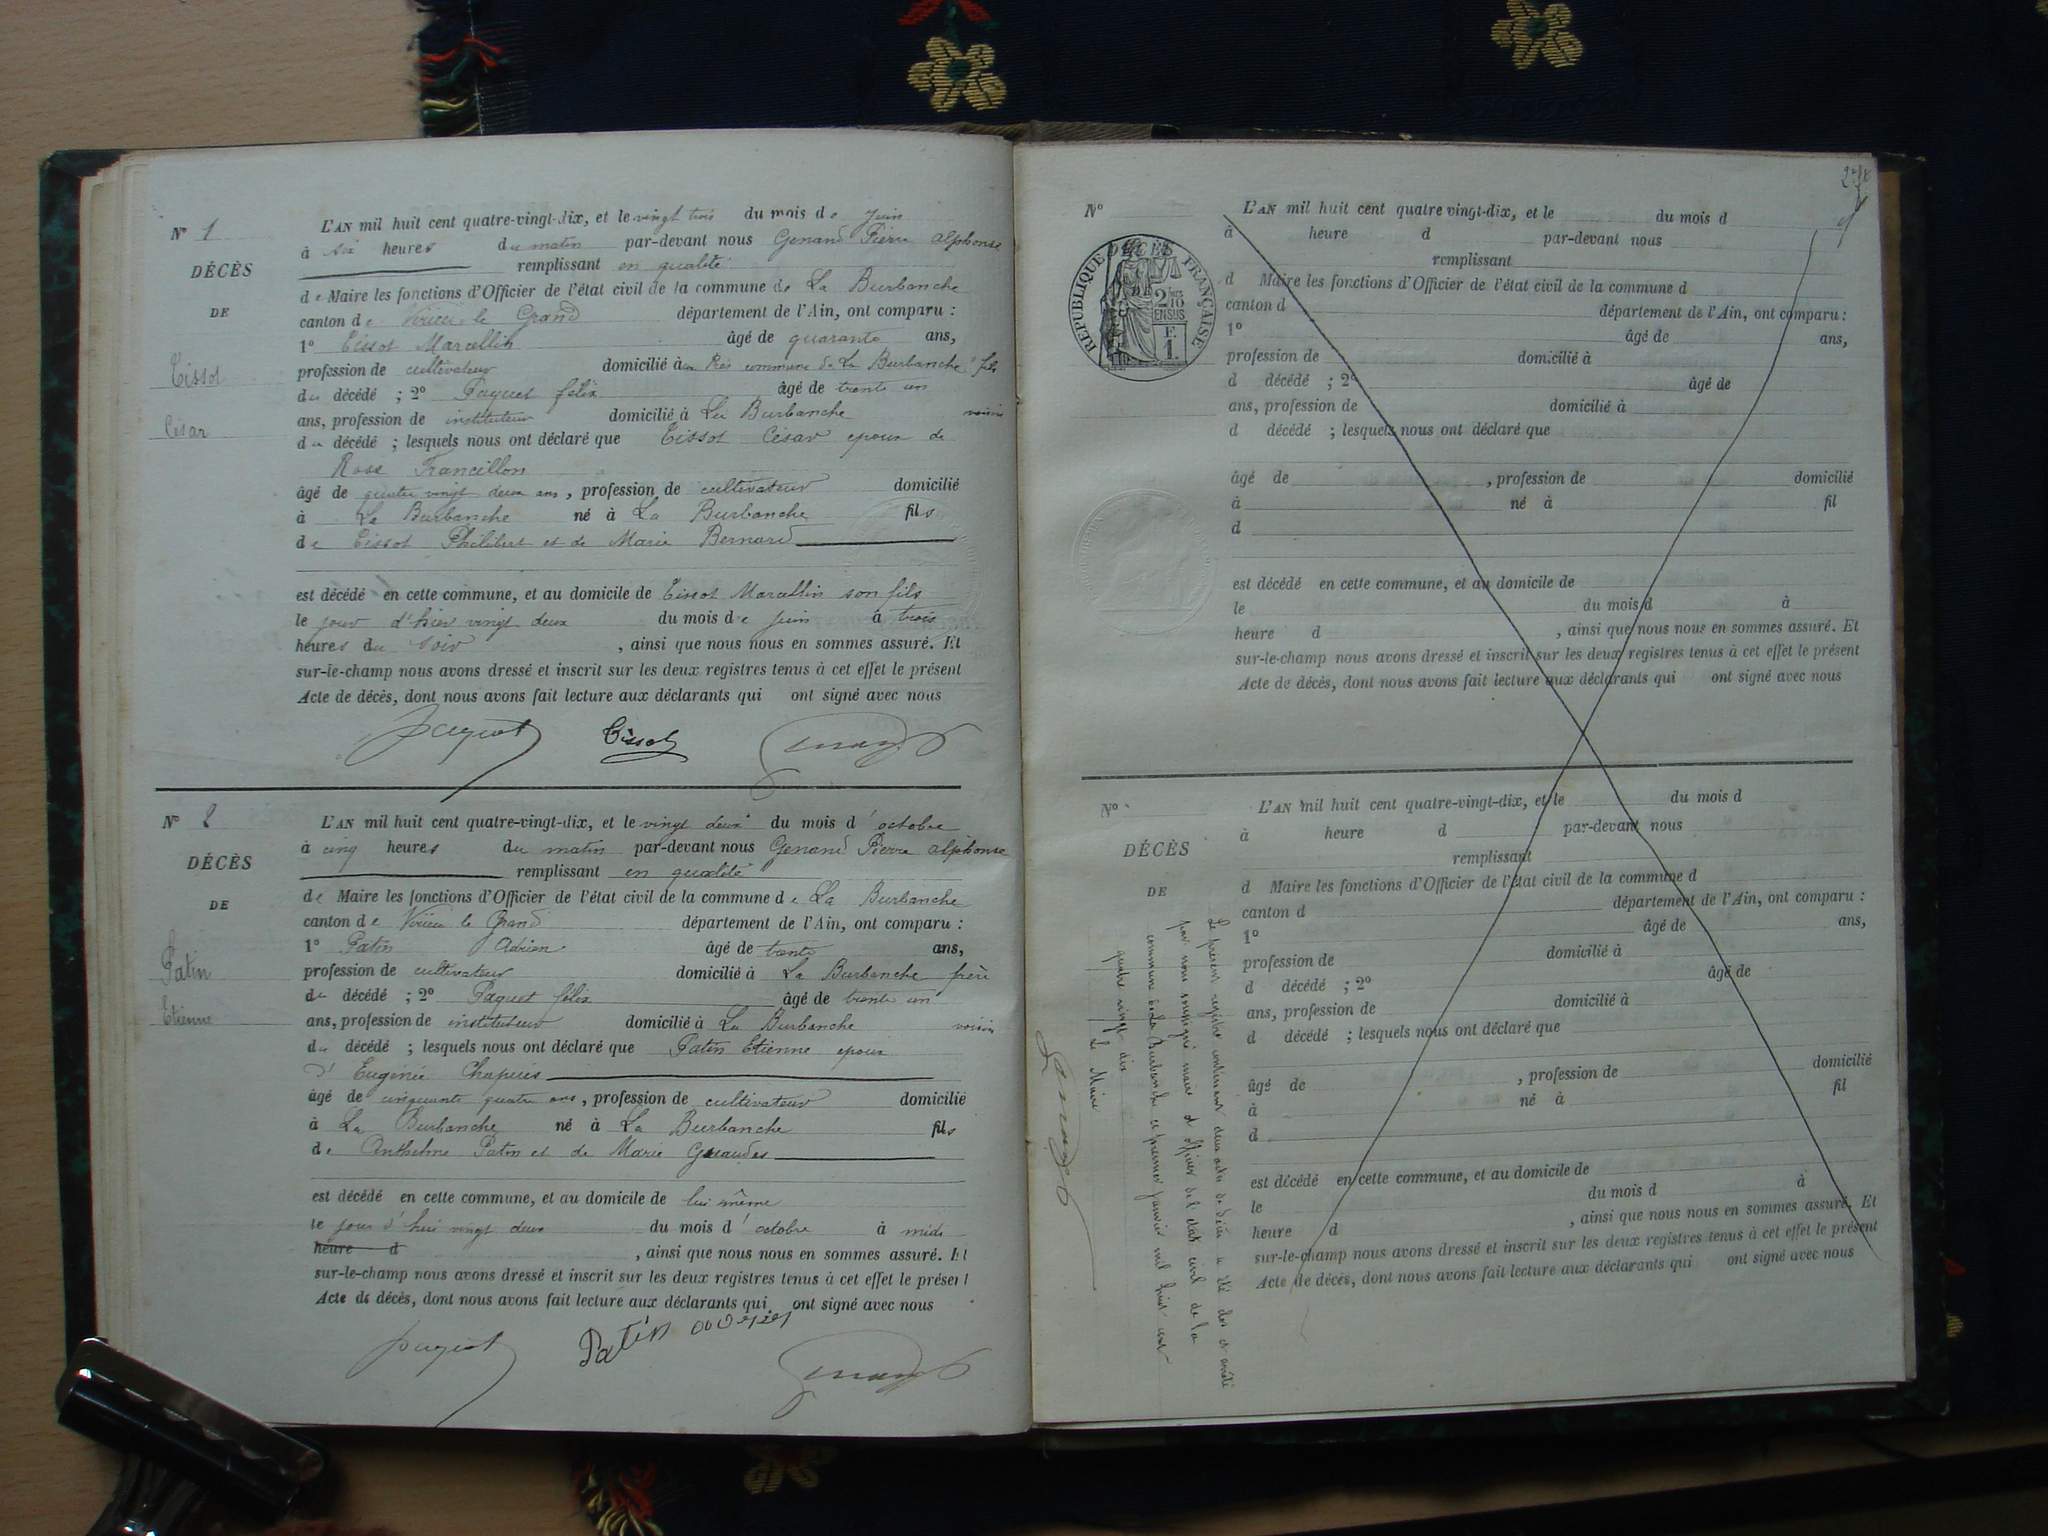 N° 1
DÉCÈS
DE
Tissot
César
L'AN mil huit cent quatre-vingt-dix, et le vingt trois du mois de juin
à six heures du matin par-devant nous Genand Pierre alphonse
remplissant en qualité
de Maire les fonctions d'Officier de l'état civil de la commune de La Burbanche
canton de Virieu le Grand département de l'Ain, ont comparu :
1° Tissot Marcellin âgé de quarante ans,
profession de cultivateur domicilié à Prés commune de La Burbanche fils
du décédé ; 2° Paquet félix âgé de trente un
ans, profession de instituteur domicilié à La Burbanche voisin
du décédé ; lesquels nous ont déclaré que Tissot César epoux de
Rose Francillon
âgé de quatre vingt deux ans, profession de cultivateur domicilié
à La Burbanche né à La Burbanche fils
de Tissot Philibert et de Marie Bernard
est décédé en cette commune, et au domicile de Tissot Marcellin son fils
le jour d'hier vingt deux du mois de juin à trois
heures du soir, ainsi que nous nous en sommes assuré. Et
sur-le-champ nous avons dressé et inscrit sur les deux registres tenus à cet effet le présent
Acte de décès, dont nous avons fait lecture aux déclarants qui ont signé avec nous
Paquet Tissot Genand
N° 2
DÉCÈS
DE
Patin
Etienne
L'AN mil huit cent quatre-vingt-dix, et le vingt deux du mois d'octobre
à cinq heures du matin par-devant nous Genand Pierre alphonse
remplissant en qualité
de Maire les fonctions d'Officier de l'état civil de la commune de La Burbanche
canton de Virieu le Grand département de l'Ain, ont comparu :
1° Patin Adrien âgé de trente ans,
profession de cultivateur domicilié à La Burbanche frère
du décédé ; 2° Paquet félix âgé de trente un
ans, profession de instituteur domicilié à La Burbanche voisin
du décédé ; lesquels nous ont déclaré que Patin Etienne epoux
d'Eugénie Chapuis
âgé de cinquante quatre ans, profession de cultivateur domicilié
à La Burbanche né à La Burbanche fils
de Anthelme Patin et de Marie
est décédé en cette commune, et au domicile de lui même
le jour d'hui vingt deux du mois d'octobre à midi
heure d , ainsi que nous nous en sommes assuré. Et
sur-le-champ nous avons dressé et inscrit sur les deux registres tenus à cet effet le présent
Acte de décès, dont nous avons fait lecture aux déclarants qui ont signé avec nous
Paquet Patin Genand
N°
RÉPUBLIQUE FRANÇAISE
DÉCÈS
2 10mes
EN SUS
F.
1.
L'AN mil huit cent quatre vingt-dix, et le du mois d
à heure d par-devant nous
remplissant
d Maire les fonctions d'Officier de l'état civil de la commune d
canton d département de l'Ain, ont comparu :
1° âgé de ans,
profession de domicilié à
d décédé ; 2° âgé de
ans, profession de domicilié à
d décédé ; lesquels nous ont déclaré que
âgé de , profession de domicilié
à né à fil
d
est décédé en cette commune, et au domicile de
le du mois d à
heure d , ainsi que nous nous en sommes assuré. Et
sur-le-champ nous avons dressé et inscrit sur les deux registres tenus à cet effet le présent
Acte de décès, dont nous avons fait lecture aux déclarants qui ont signé avec nous
N°
DÉCÈS
DE
L'AN mil huit cent quatre-vingt-dix, et le du mois d
à heure d par-devant nous
remplissant
d Maire les fonctions d'Officier de l'état civil de la commune d
canton d département de l'Ain, ont comparu :
1° âgé de ans,
profession de domicilié à
d décédé ; 2° âgé de
ans, profession de domicilié à
d décédé ; lesquels nous ont déclaré que
âgé de , profession de domicilié
à né à fil
d
est décédé en cette commune, et au domicile de
le du mois d à
heure d , ainsi que nous nous en sommes assuré. Et
sur-le-champ nous avons dressé et inscrit sur les deux registres tenus à cet effet le présent
Acte de décès, dont nous avons fait lecture aux déclarants qui ont signé avec nous
Le présent registre contenant deux actes de décès a été clos et arrêté
par nous soussigné maire et officier de l'état civil de la
commune de La Burbanche ce premier janvier mil huit cent
quatre vingt dix
Le Maire
Genand